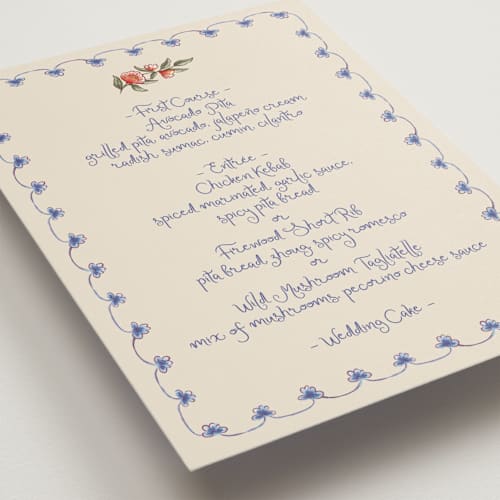 - First Course -
Avocado Pita
grilled pita, avocado, jalapeño cream
radish, sumac, cumin, cilantro
- Entrée -
Chicken Kebab
spiced marinated, garlic sauce,
spicy pita bread
or
Firewood Short Rib
pita bread, zhoug, spicy romesco
or
Wild Mushroom Tagliatelle
mix of mushrooms, pecorino cheese sauce
- Wedding Cake -